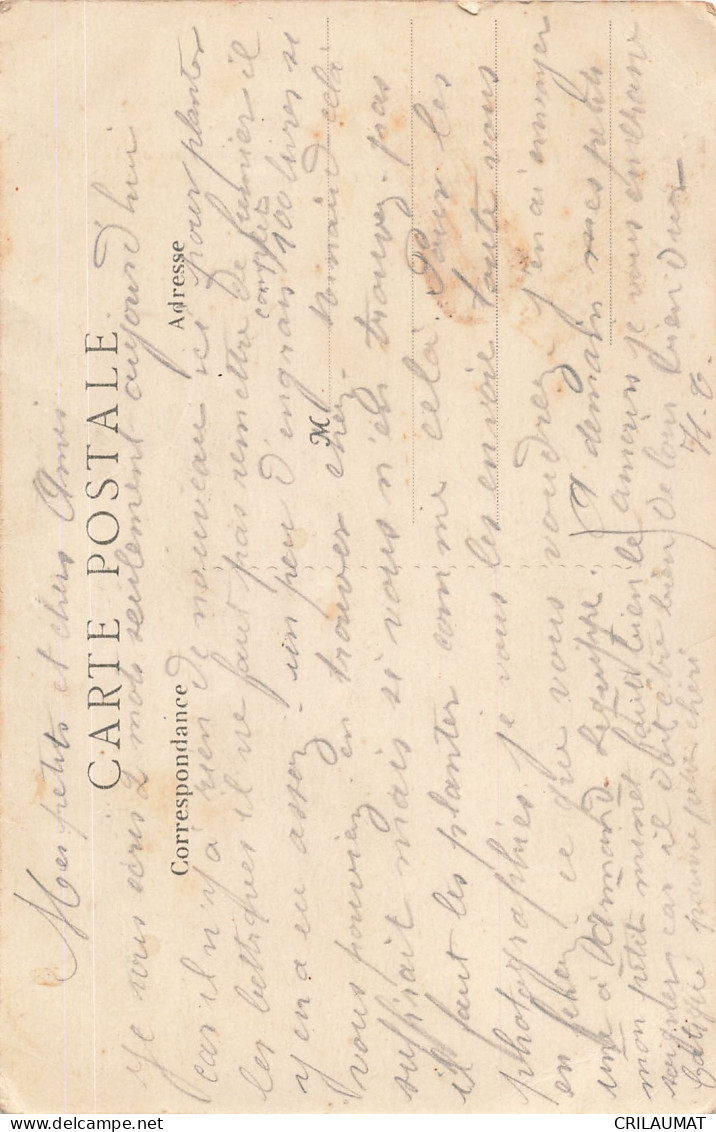 Mes petits et chers Amis
CARTE POSTALE
Je vous écris 2 mots seulement aujourd'hui
Correspondance
Adresse
car il n'y a rien de nouveau ici pour planter
les bettraves il ne faut pas remettre de fumier il
complet
y en a eu assez un peu d'engrais 100 livres si
M
vous pouviez en trouver chez cela
suffirait mais si vous n'en trouvez pas
il faut les planter comme cela. Pour les
photographies je vous les envoie toute vous
en ferez ce que vous voudrez j'en ai envoyer
une à Armand A demain mes petits
mon petit minet je vous embrasse
souffrir car il doit être bien de loin
fatigué pauvre petit chéri
CRILAUMAT